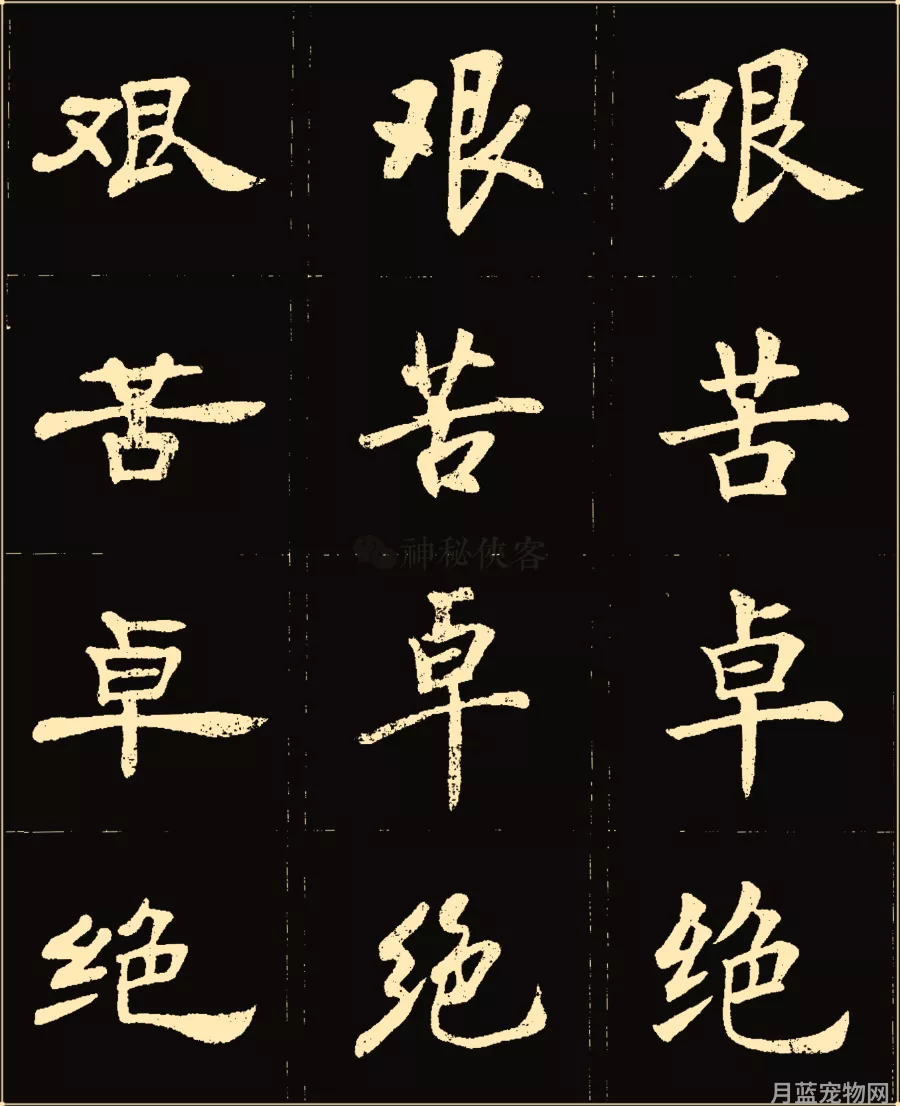 艰 艰 艰
苦 苦 苦
卓 卓 卓
绝 绝 绝
神秘侠客
月蓝宠物网